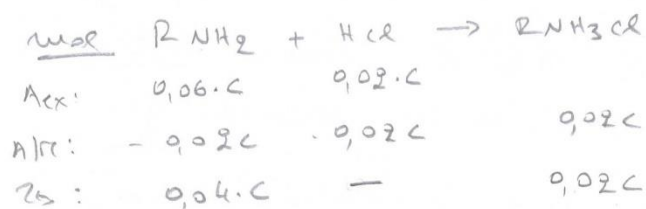 mol RNH2 + HCl → RNH3Cl
Αρχ: 0,06·C 0,02·C
Α/Π: - 0,02C - 0,02C 0,02C
Τελ: 0,04·C — 0,02C